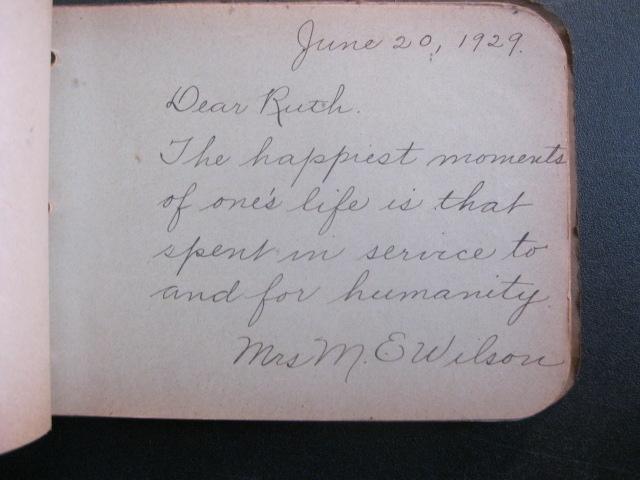 June 20, 1929.
Dear Ruth.
The happiest moments
of one's life is that
spent in service to
and for humanity.
Mrs M. E Wilson